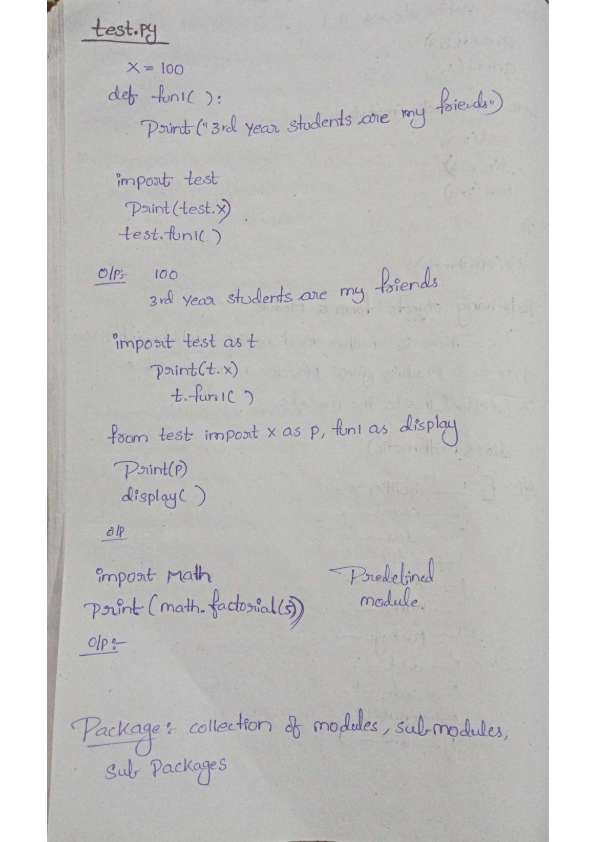 test.py
x = 100
def fun1( ):
Print("3rd year students are my friends")
import test
Print(test.x)
test.fun1( )
O/P:- 100
3rd year students are my friends
import test as t
print(t.x)
t.fun1( )
from test import x as p, fun1 as display
Print(p)
display( )
o/p
import Math Predefined
print(math.factorial(5)) module.
O/P:-
Package: collection of modules, submodules,
sub Packages